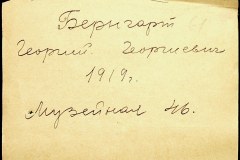 Бернгарт
Георгий Георгиевич
1919г.
Музейная 46.